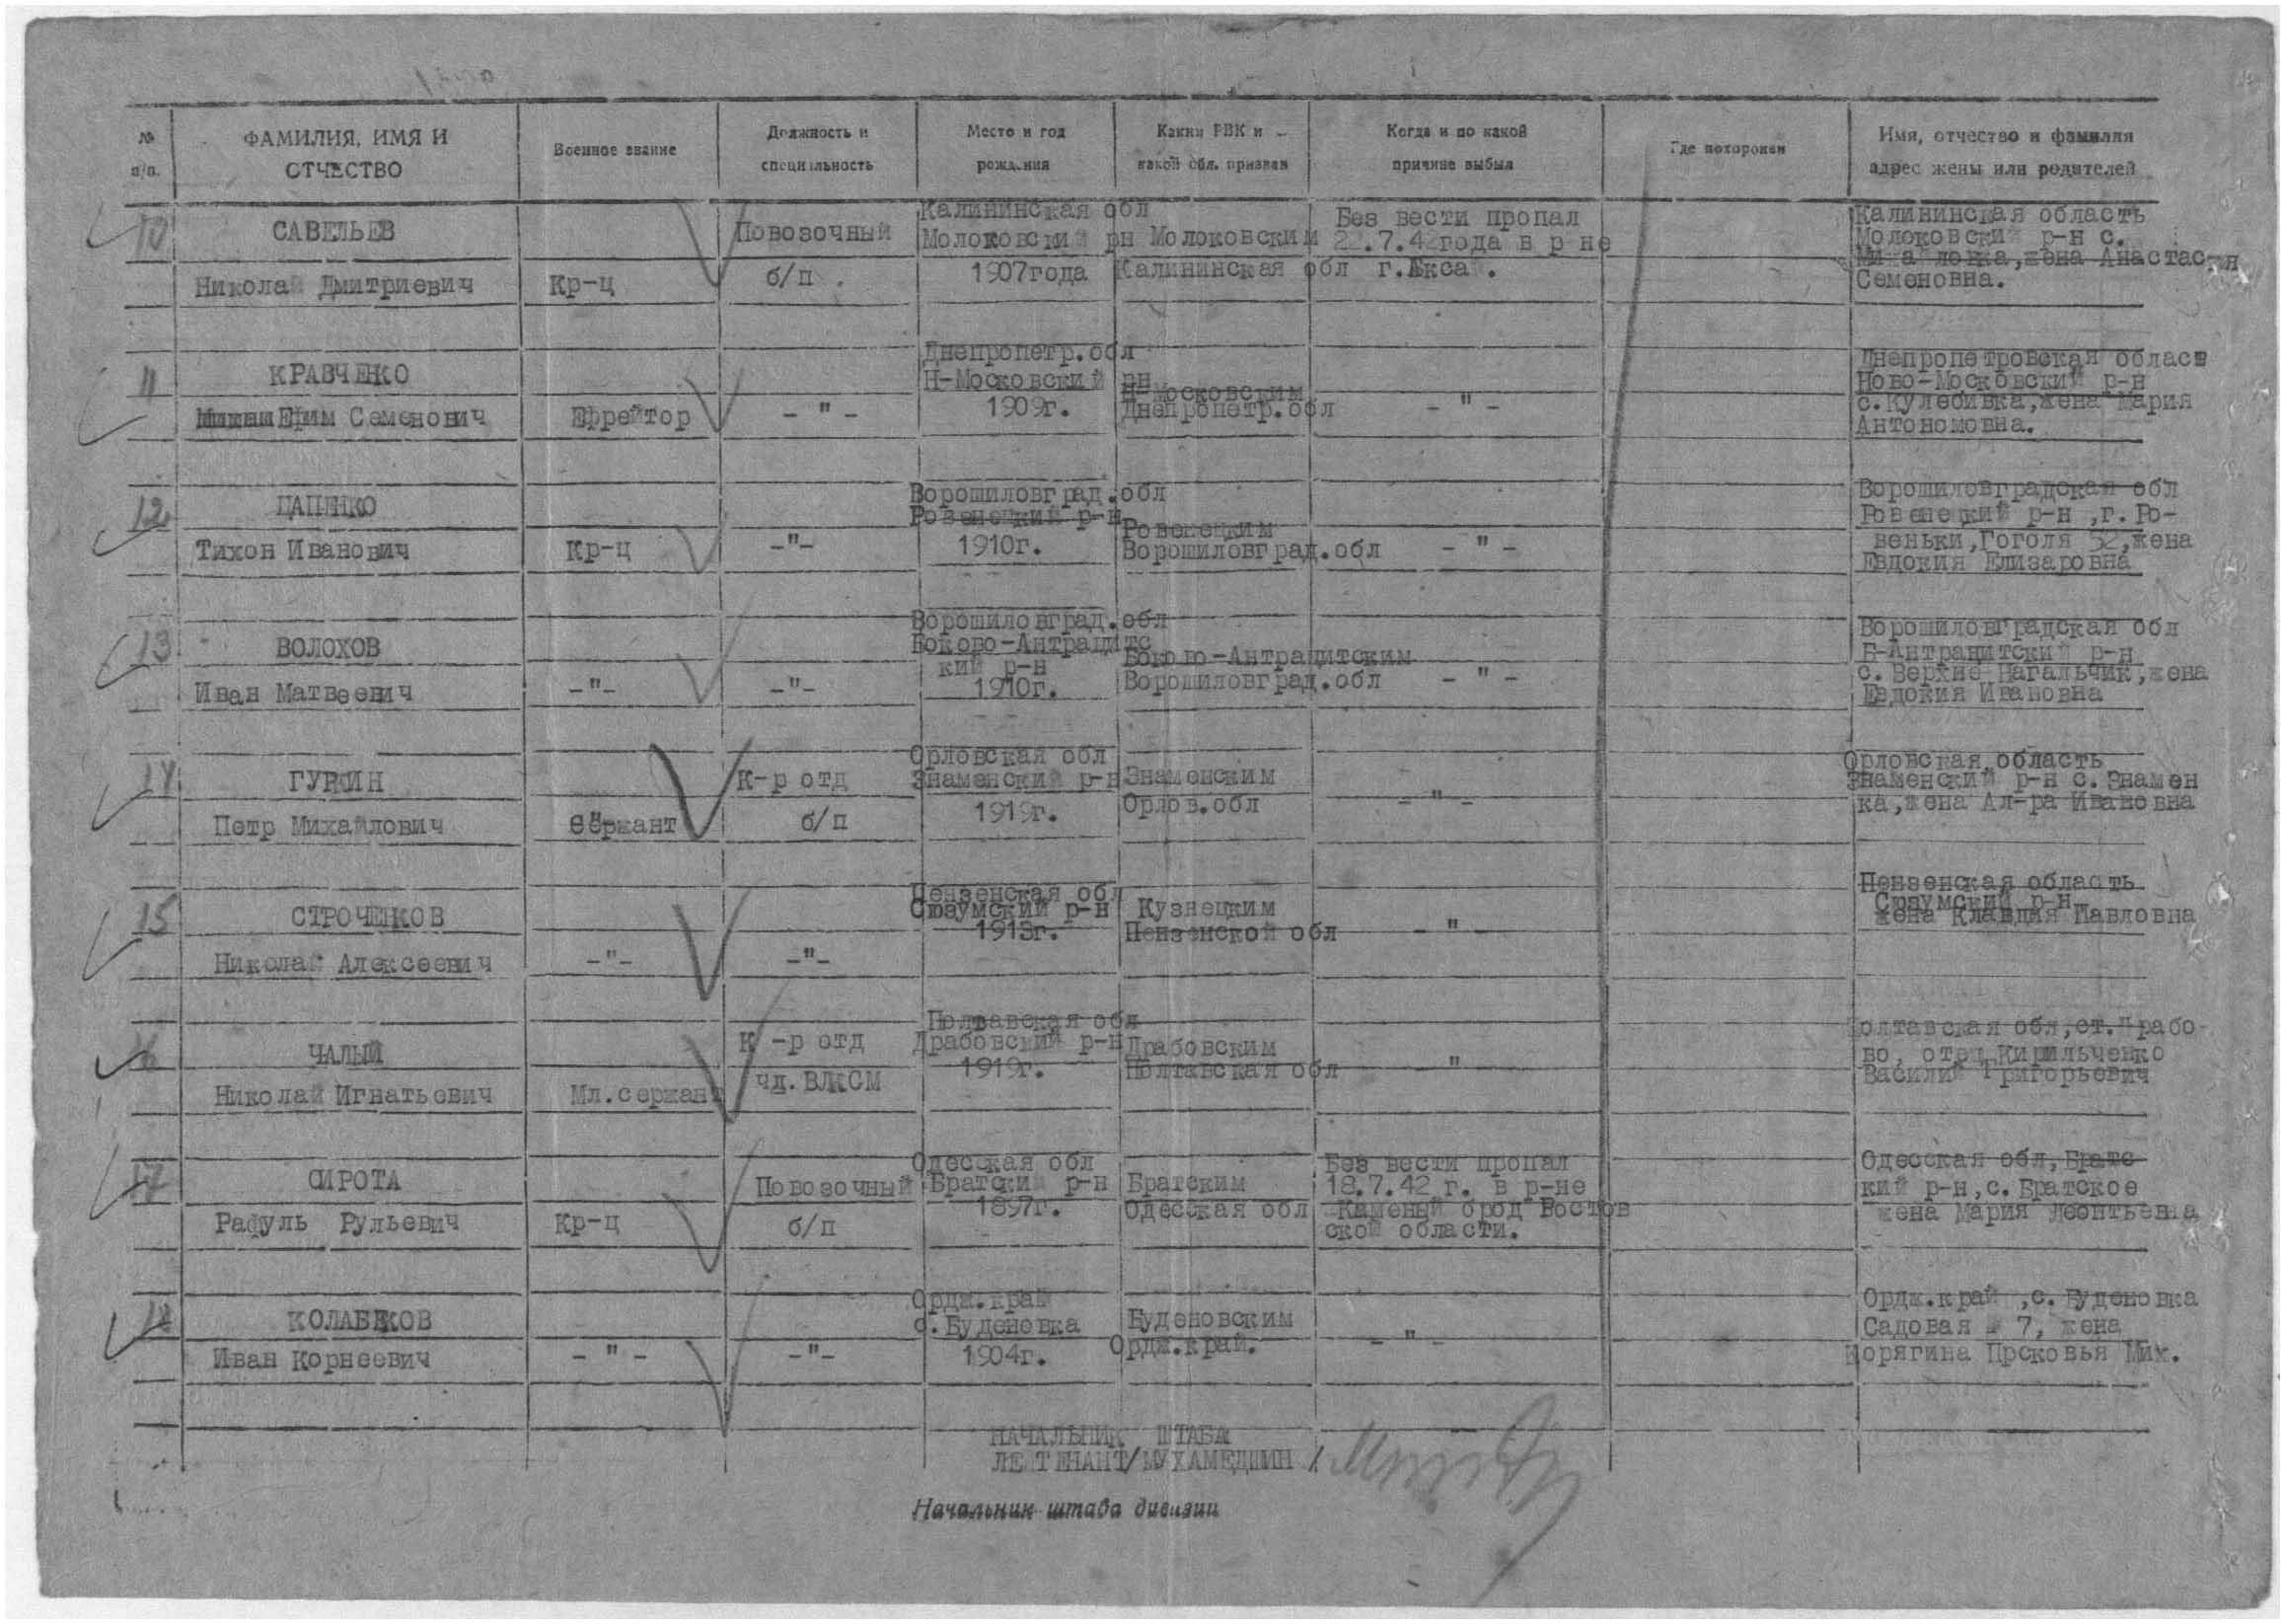 № п/п.
ФАМИЛИЯ, ИМЯ И ОТЧЕСТВО
Военное звание
Должность и специальность
Место и год рождения
Каким РВК и какой обл. призван
Когда и по какой причине выбыл
Где похоронен
Имя, отчество и фамилия адрес жены или родителей
10
САВЕЛЬЕВ
Николай Дмитриевич
Кр-ц
Повозочный
б/п
Калининская обл
Молоковский рн
1907года
Молоковским
Калининская обл
Без вести пропал
22.7.42года в р не
г.Акса.
Калининская область
Молоковский р-н с.
Михайловка,жена Анастасия
Семеновна.
11
КРАВЧЕНКО
Ефим Семенович
Ефрейтор
-"-
Днепропетр.обл
Н-Московский рн
1909г.
Н-Московским
Днепропетр.обл
-"-
Днепропетровская област
Ново-Московский р-н
с.Кулебивка,жена Мария
Антономовна.
12
ЦАПЕНКО
Тихон Иванович
Кр-ц
-"-
Ворошиловград.обл
Ровенецкий р-н
1910г.
Ровенецким
Ворошиловград.обл
-"-
Ворошиловградская обл
Ровенецкий р-н ,г. Ро-
веньки,Гоголя 52,жена
Евдокия Елизаровна
13
ВОЛОХОВ
Иван Матвеевич
-"-
-"-
Ворошиловград.обл
Боково-Антрацитс
кий р-н
1910г.
Боково-Антрацитским
Ворошиловград.обл
-"-
Ворошиловградская обл
Б-Антрацитский р-н
с. Верхне Нагальчик,жена
Евдокия Ивановна
14
ГУРКИН
Петр Михайлович
Сержант
К-р отд
б/п
Орловская обл
Знаменский р-н
1919г.
Знаменским
Орлов.обл
-"-
Орловская область
Знаменский р-н с. Знамен
ка,жена Ал-ра Ивановна
15
СТРОЧЕНКОВ
Николай Алексеевич
-"-
-"-
Пензенская обл
Сюзумский р-н
1913г.
Кузнецким
Пензенской обл
-"-
Пензенская область
Сюзумский р-н
жена Клавдия Павловна
16
ЧАЛЫЙ
Николай Игнатьевич
Мл.сержант
К -р отд
чл.ВЛКСМ
Полтавская обл
Драбовский р-н
1919г.
Драбовским
Полтавская обл
"
Полтавская обл,ст.Драбо-
во, отец Кирильченко
Василий Григорьевич
17
СИРОТА
Рафуль Рульевич
Кр-ц
Повозочный
б/п
Одесская обл
Братский р-н
1897г.
Братским
Одесская обл
Без вести пропал
18.7.42 г. в р-не
Каменый брод Ростов
ской области.
Одесская обл,Братс
кий р-н,с.Братское
жена Мария Леонтьевна
18
КОЛАБЕКОВ
Иван Корнеевич
-"-
-"-
Ордж.край
с.Буденовка
1904г.
Буденовским
Ордж.край.
-"-
Ордж.край ,с.Буденовка
Садовая № 7, жена
Корягина Прсковья Мих.
НАЧАЛЬНИК ШТАБА
ЛЕЙТЕНАНТ/МУХАМЕДШИН /
Начальник штаба дивизии